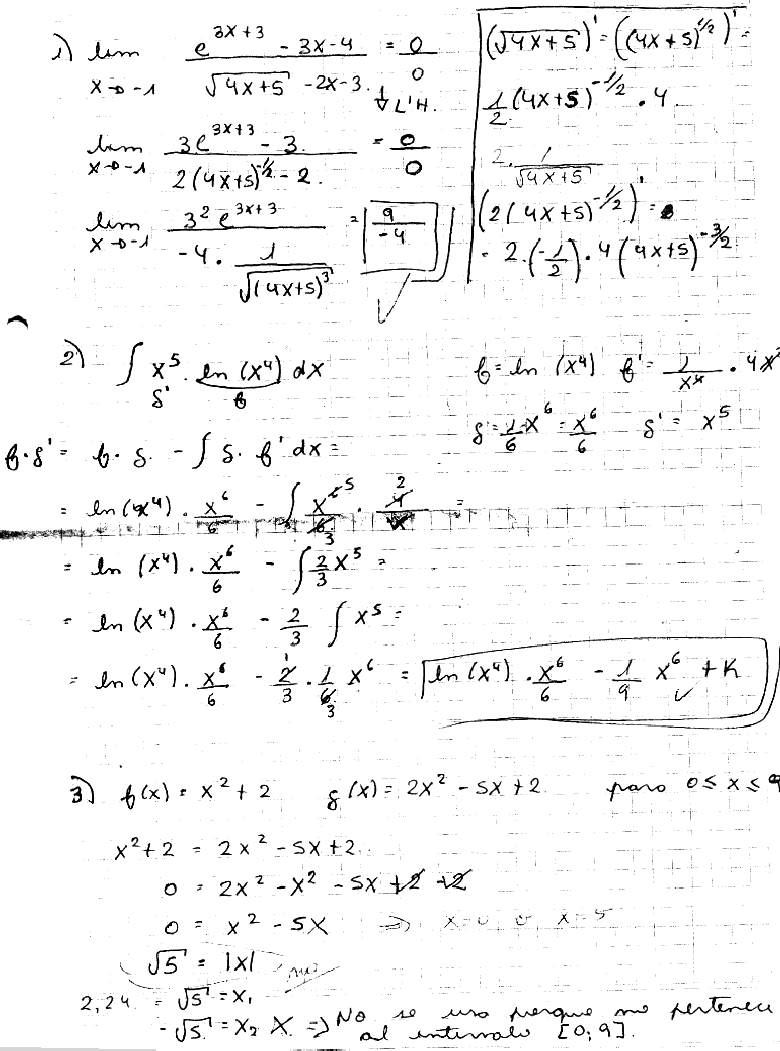 1) lim x→-1 (e^(3x+3) - 3x - 4) / (√(4x+5) - 2x - 3) = 0/0 ↓ L'H.
lim x→-1 (3e^(3x+3) - 3) / (2(4x+5)^(-1/2) - 2) = 0/0
lim x→-1 (3² e^(3x+3)) / (-4 · 1/√(4x+5)³) = 9/-4 ✓
(√(4x+5))' = ((4x+5)^(1/2))' =
1/2 (4x+5)^(-1/2) · 4
2 · 1/√(4x+5)
(2(4x+5)^(-1/2))' =
= 2 · (-1/2) · 4 (4x+5)^(-3/2)
2) ∫ x⁵ · ln(x⁴) dx
g' f
f = ln(x⁴) f' = 1/x⁴ · 4x³
g = 1/6 x⁶ = x⁶/6 g' = x⁵
f·g' = f·g - ∫ g·f' dx =
= ln(x⁴) · x⁶/6 - ∫ x⁶/6 · 4/x =
= ln(x⁴) · x⁶/6 - ∫ 2/3 x⁵ =
= ln(x⁴) · x⁶/6 - 2/3 ∫ x⁵ =
= ln(x⁴) · x⁶/6 - 2/3 · 1/6 x⁶ = ln(x⁴) · x⁶/6 - 1/9 x⁶ + K ✓
3) f(x) = x² + 2 g(x) = 2x² - 5x + 2 para 0 ≤ x ≤ 9
x² + 2 = 2x² - 5x + 2
0 = 2x² - x² - 5x + 2 - 2
0 = x² - 5x ⇒ x=0 ó x=5
√5 = |x|
2,24 = √5 = x₁
-√5 = x₂ X ⇒ No se usa porque no pertenece
al intervalo [0;9].